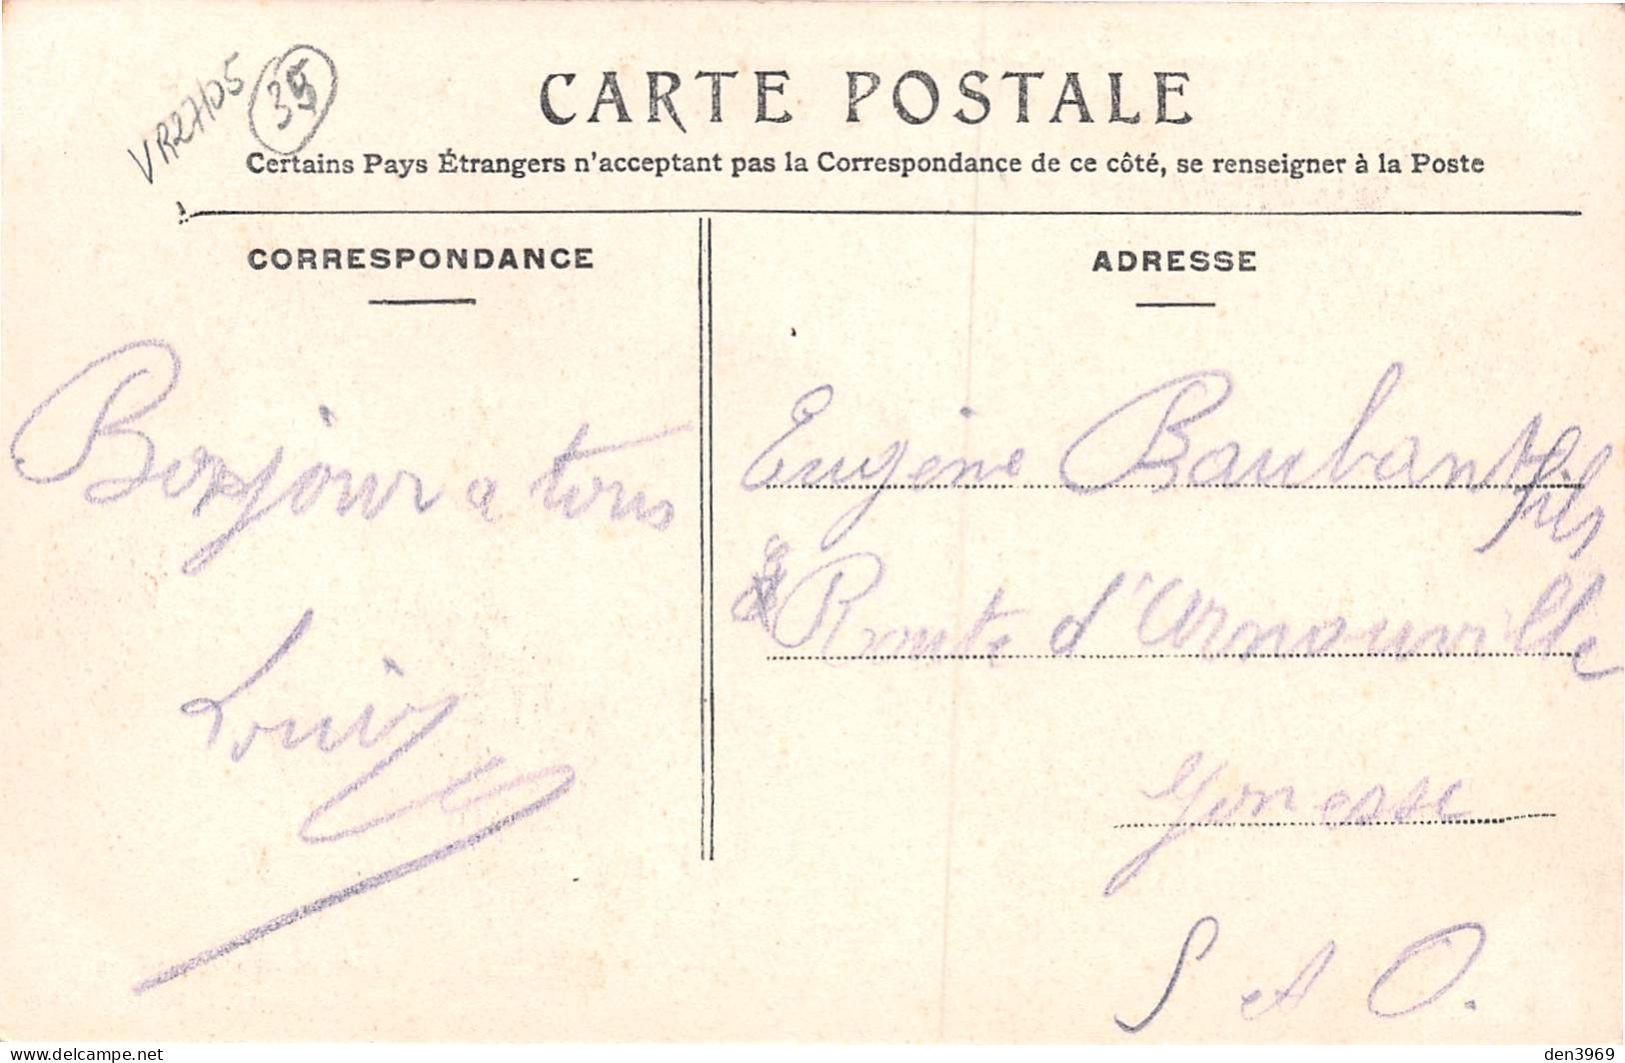 VR27/05
35
CARTE POSTALE
Certains Pays Étrangers n'acceptant pas la Correspondance de ce côté, se renseigner à la Poste
CORRESPONDANCE
Bonjour a tous
Louis
ADRESSE
Eugène Baubant
fils
Route d'Arnouville
Gonesse
S et O.
den3969